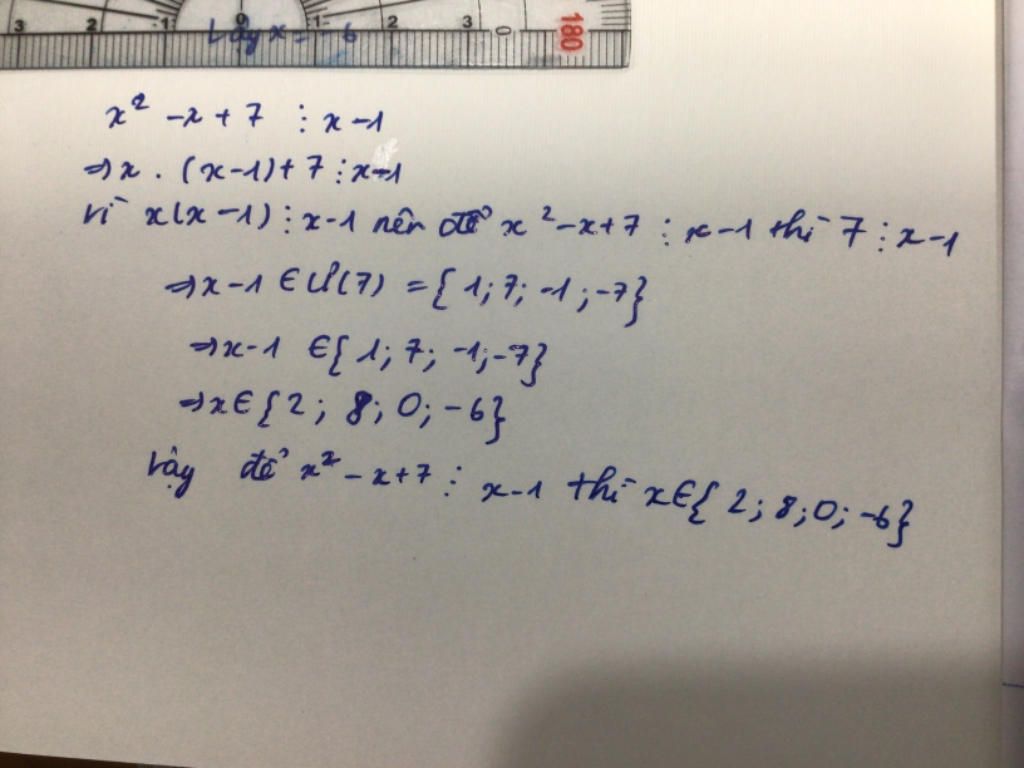 3 2 1 0 1 2 3 0 180
Vậy x = -6
x² - x + 7 ⋮ x - 1
⇒ x . (x - 1) + 7 ⋮ x - 1
Vì x(x - 1) ⋮ x - 1 nên để x² - x + 7 ⋮ x - 1 thì 7 ⋮ x - 1
⇒ x - 1 ∈ Ư(7) = { 1; 7; -1; -7}
⇒ x - 1 ∈ { 1; 7; -1; -7}
⇒ x ∈ { 2; 8; 0; -6}
Vậy để x² - x + 7 ⋮ x - 1 thì x ∈ { 2; 8; 0; -6}